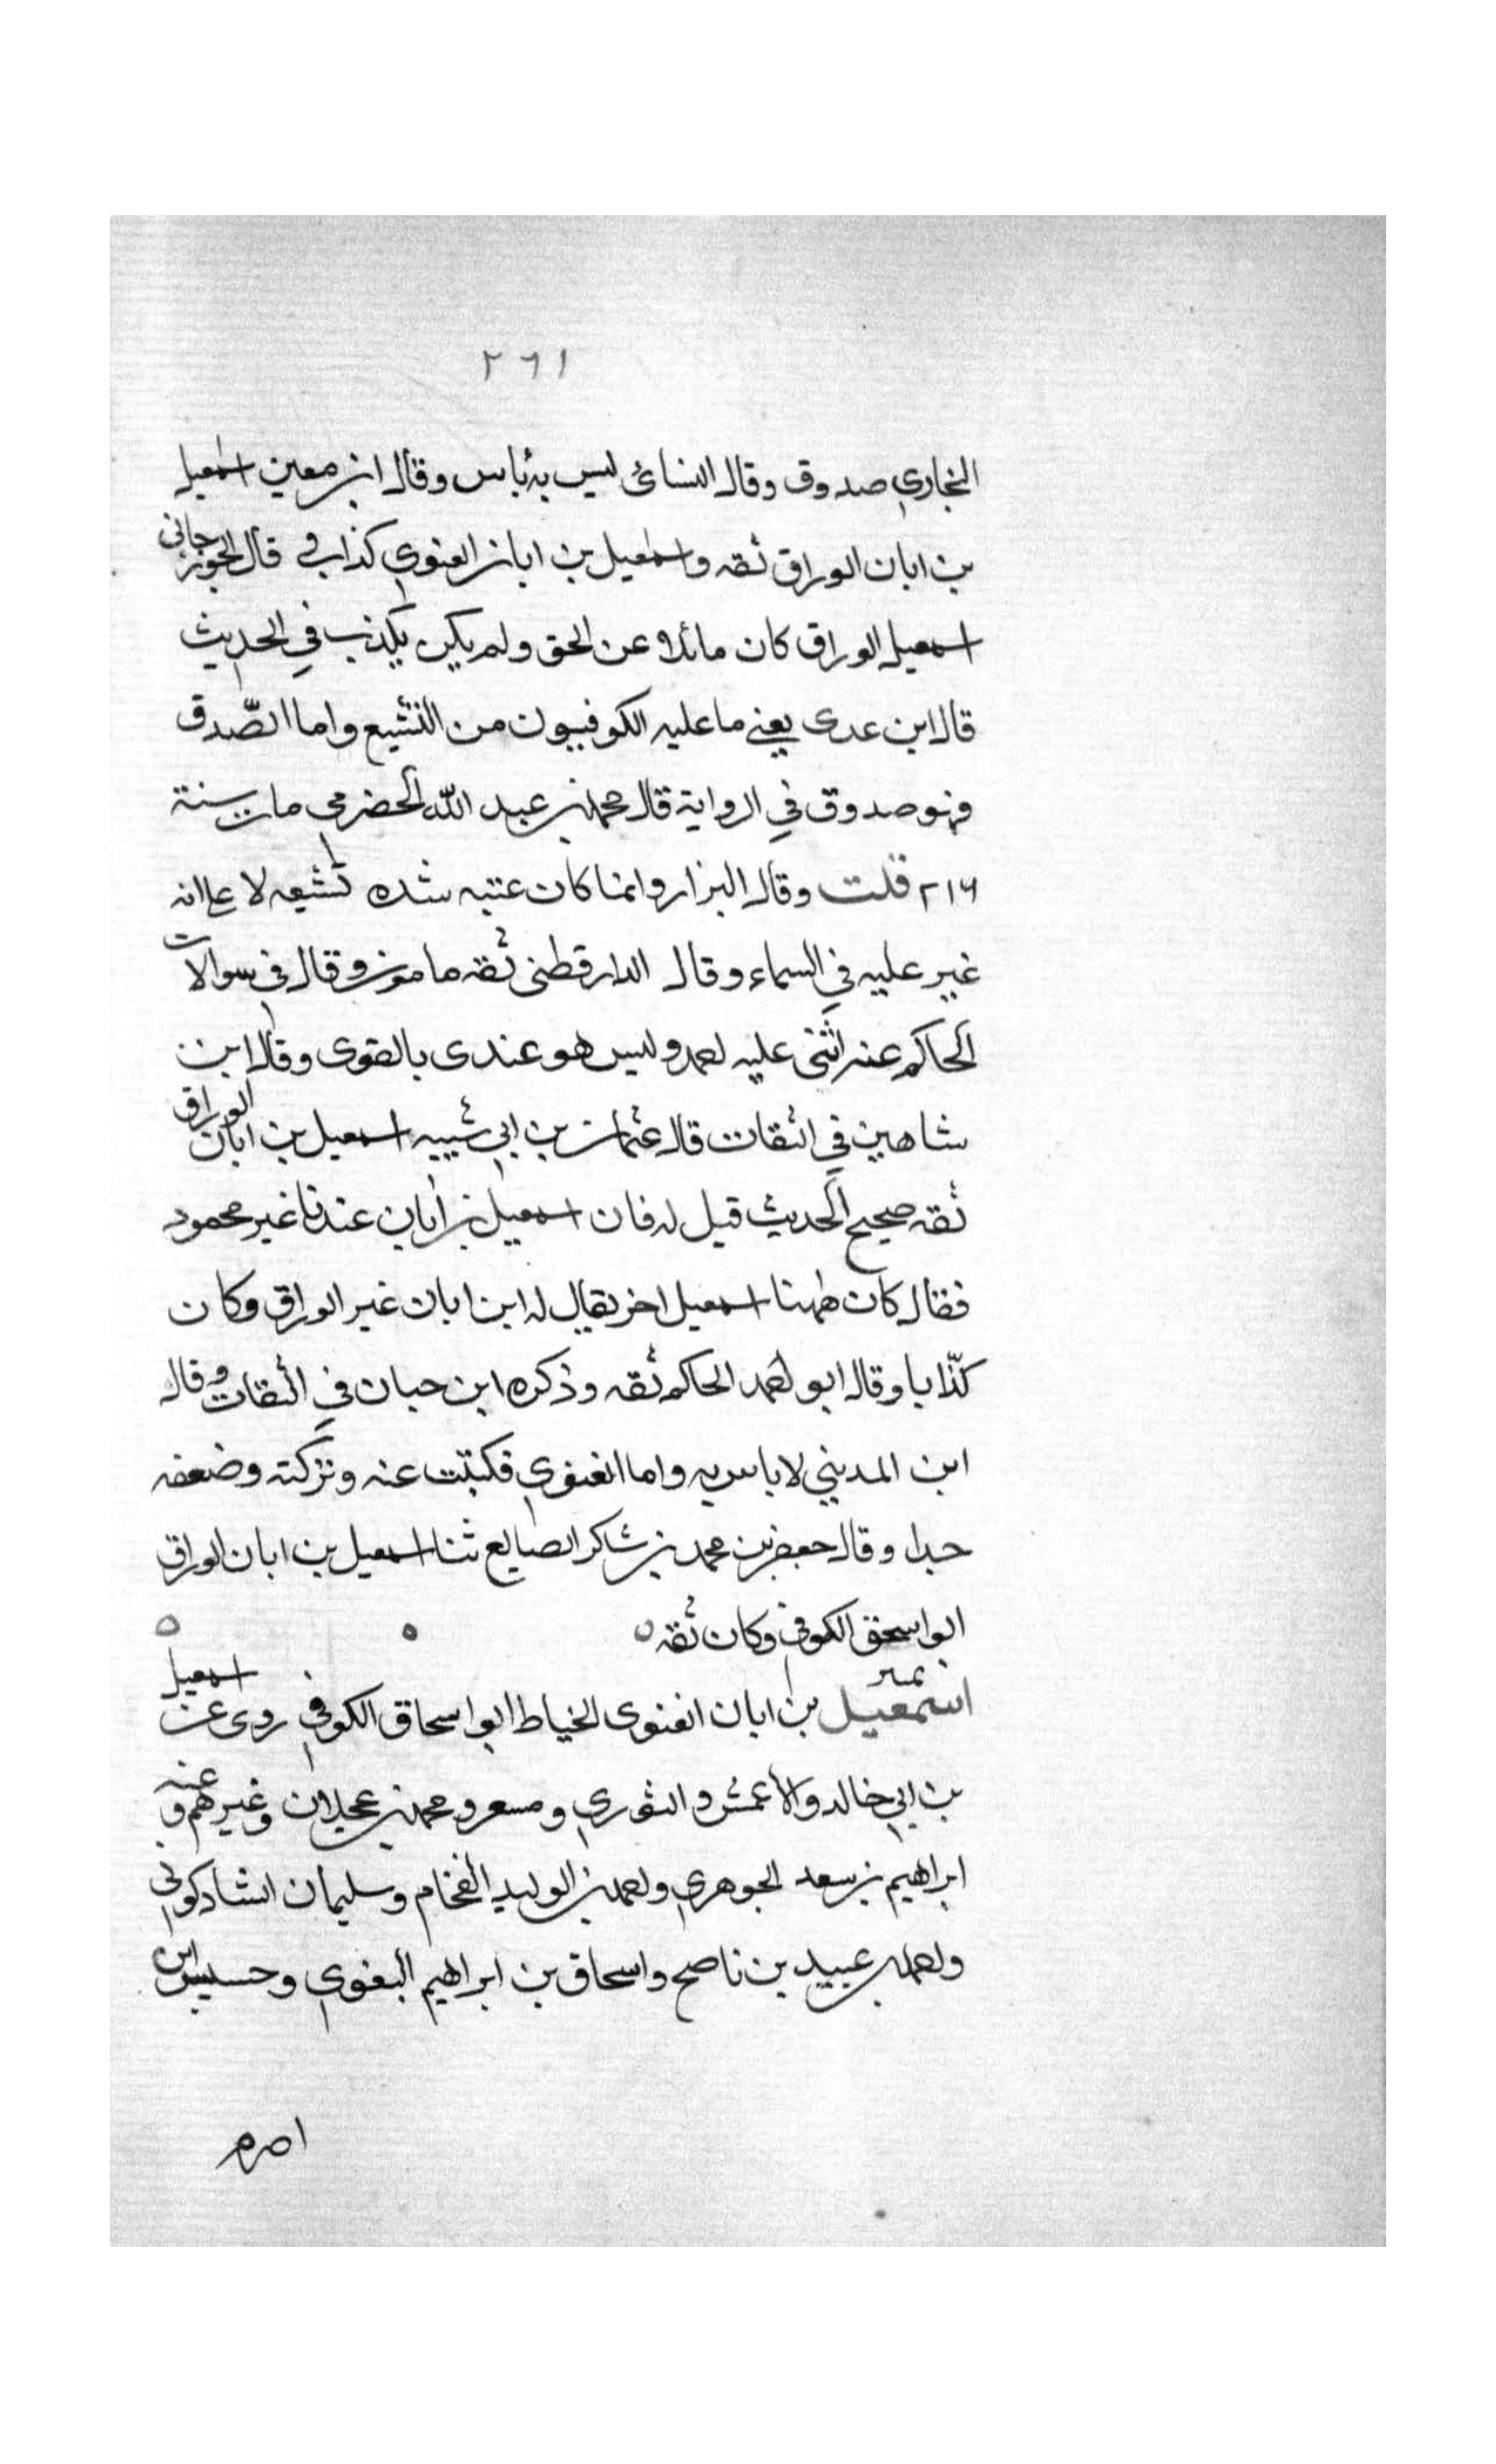 ٢٦١
البخاري صدوق وقال النسائى ليس به بأس وقال ابن معين اسمعيل
بن ابان الوراق ثقه واسمعيل بن ابان الغنوي كذاب قال الجوزجانى
اسمعيل الوراق كان مائلا عن الحق ولم يكن يكذب في الحديث
قال ابن عدى يعني ما عليه الكوفيون من التشيع واما الصّدق
فهو صدوق في الرواية قال محمد بن عبد الله الحضرمي مات سنة
٢١٦ قلت وقال البزار وانما كان عتبه شده تشيعه لا على انه
غير عليه في السماء وقال الدارقطنى ثقه مامون وقال في سوالات
الحاكم عنه اثنى عليه احمد وليس هو عندى بالقوى وقال ابن
شاهين في الثقات قال عثمان بن ابي شيبه اسمعيل بن ابان الوراق
ثقه صحيح الحديث قيل له فان اسمعيل بن ابان عندنا غير محمود
فقال كان ههنا اسمعيل اخر يقال له ابن ابان غير الوراق وكان
كذّابا وقال ابو احمد الحاكم ثقه وذكره ابن حبان في الثقات وقال
ابن المديني لا باس به واما الغنوي فكتبت عنه وتركته وضعفه
جدا وقال جعفر بن محمد بن شاكر الصايع ثنا اسمعيل بن ابان الوراق
ابو اسحق الكوفي وكان ثقه
تمييز
اسمعيل بن ابان الغنوى الخياط ابو اسحاق الكوفي روى عن اسمعيل
بن ابي خالد والاعمش والثوري ومسعر ومحمد بن عجلان وغيرهم وعنه
ابراهيم بن سعد الجوهري واحمد بن الوليد الفخام وسليمان الشادكونى
واحمد بن عبيد بن ناصح واسحاق بن ابراهيم البغوي وحسين ابن